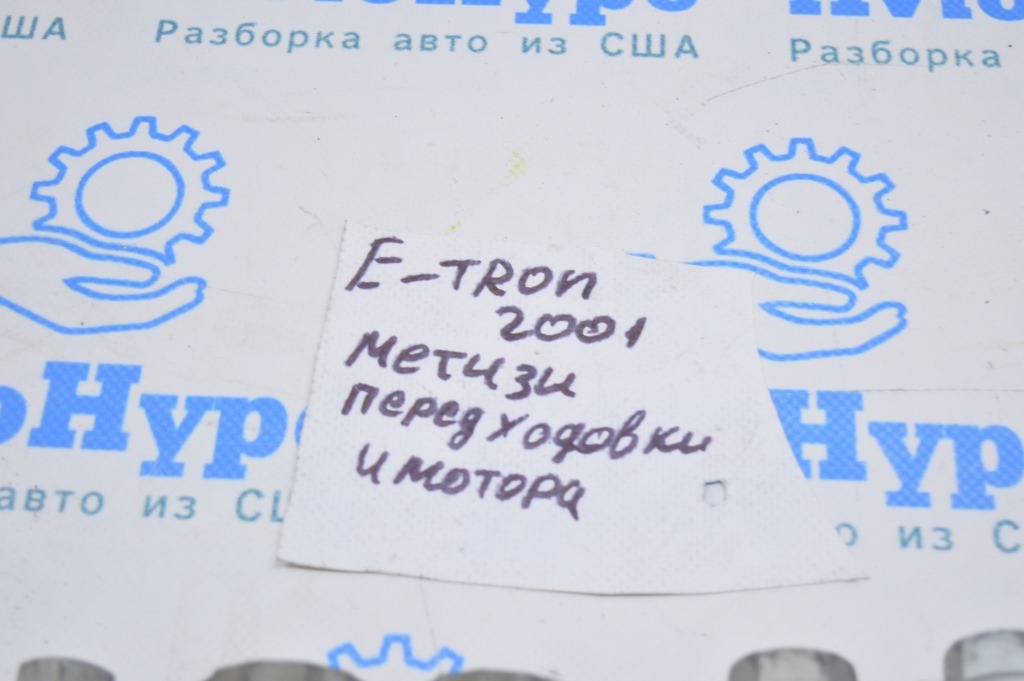 США Разборка авто из США Разборка
E-TRON
2001
Метизи
перед ходовки
и мотора
Нуро Нур
авто из США из С